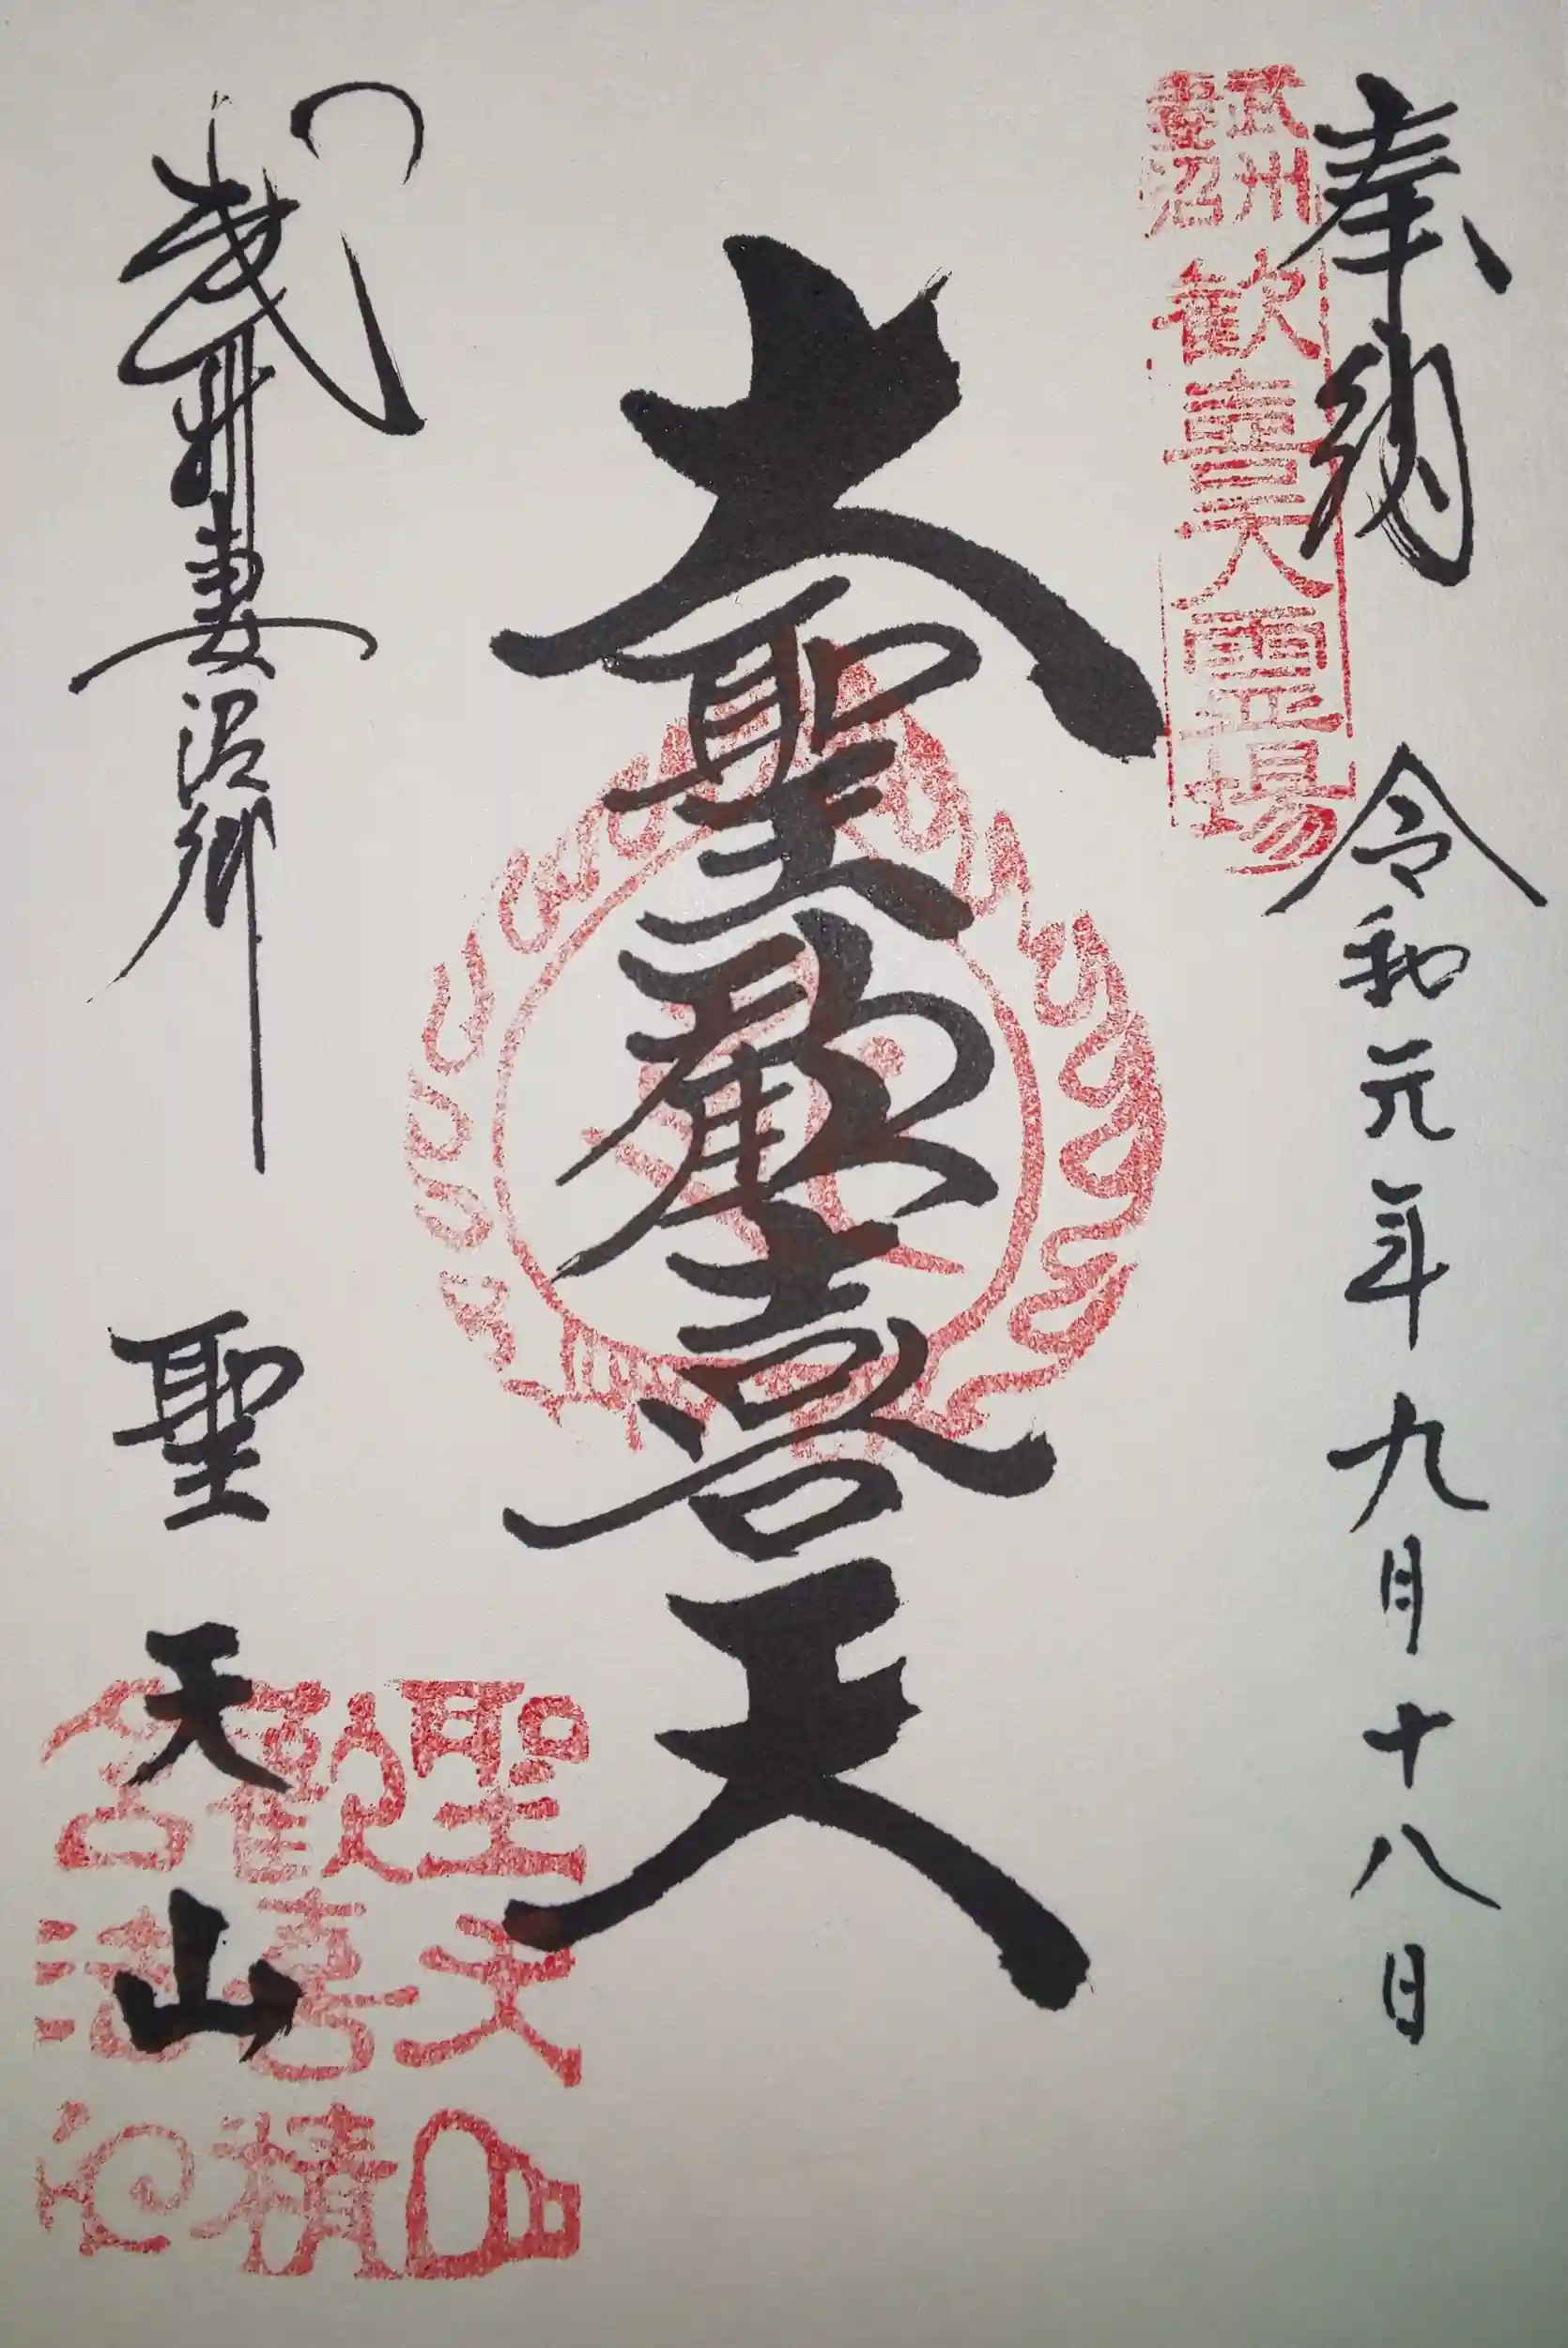 奉納 令和元年九月十八日
武州
妻沼
歓喜天霊場
大聖歓喜天
武州妻沼郷 聖天山
聖天山
歓喜積